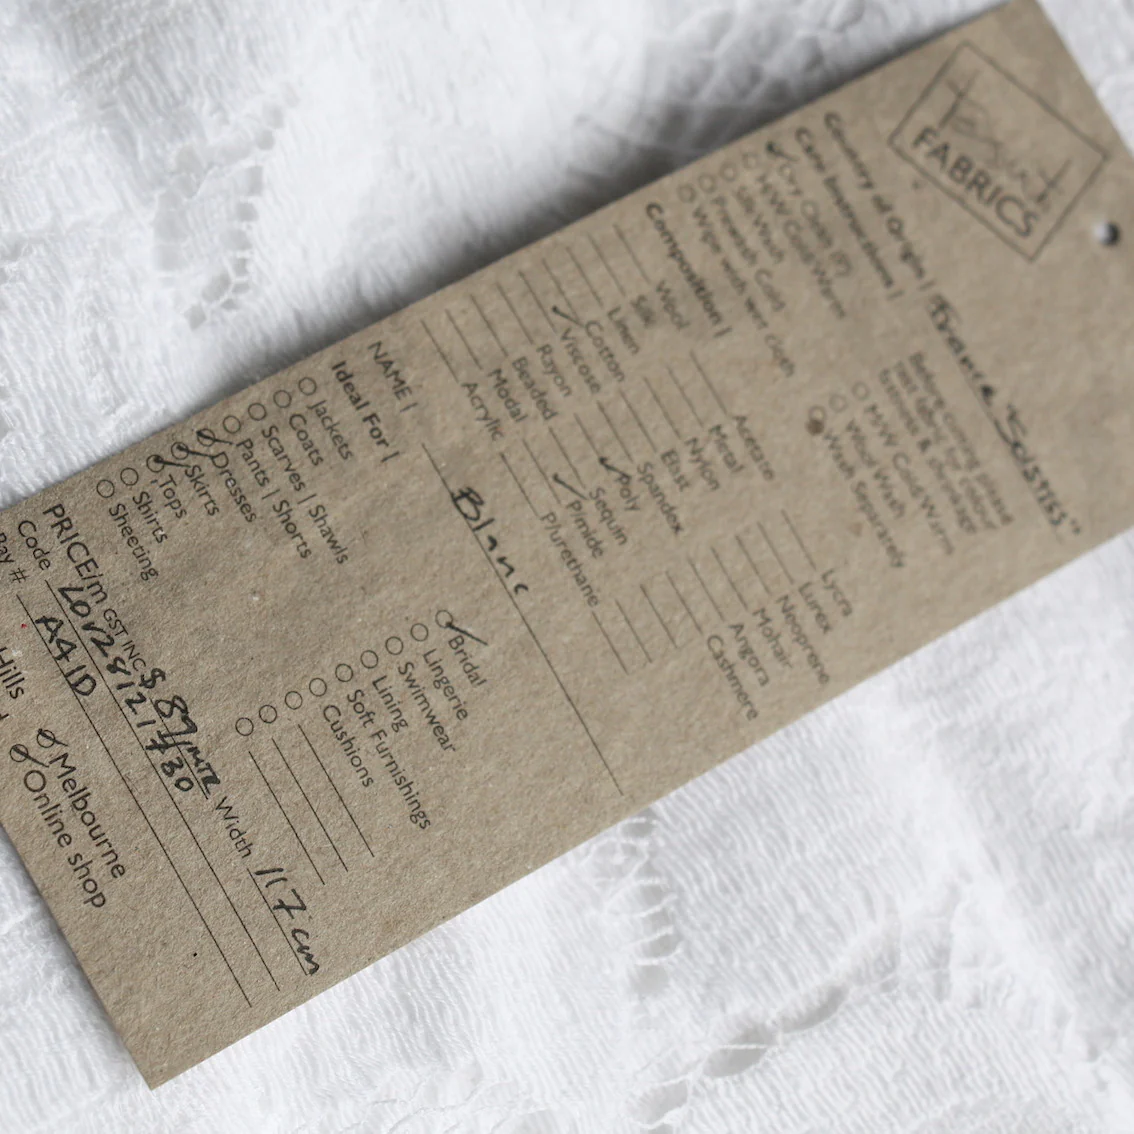 FABRICS
Country of Origin | France "Solstiss"
Care Instructions |
Dry Clean (P)
H/W Cold/Warm
Silk Wash
Prewash Cold
Wipe with wet cloth
Before cutting please
test fabric for colour
fastness & shrinkage
M/W Cold/Warm
Wool Wash
Wash Separately
Composition |
Wool
Silk
Linen
Cotton
Viscose
Rayon
Beaded
Modal
Acrylic
Acetate
Metal
Nylon
Elast
Spandex
Poly
Sequin
Pimide
Plurethane
Lycra
Lurex
Neoprene
Mohair
Angora
Cashmere
NAME | Blanc
Ideal For |
Jackets
Coats
Scarves | Shawls
Pants | Shorts
Dresses
Skirts
Tops
Shirts
Sheeting
Bridal
Lingerie
Swimwear
Lining
Soft Furnishings
Cushions
PRICE/m GST INC $ 89/MTR Width 117cm
Code
Bay # A41D
Hills
Melbourne
Online shop